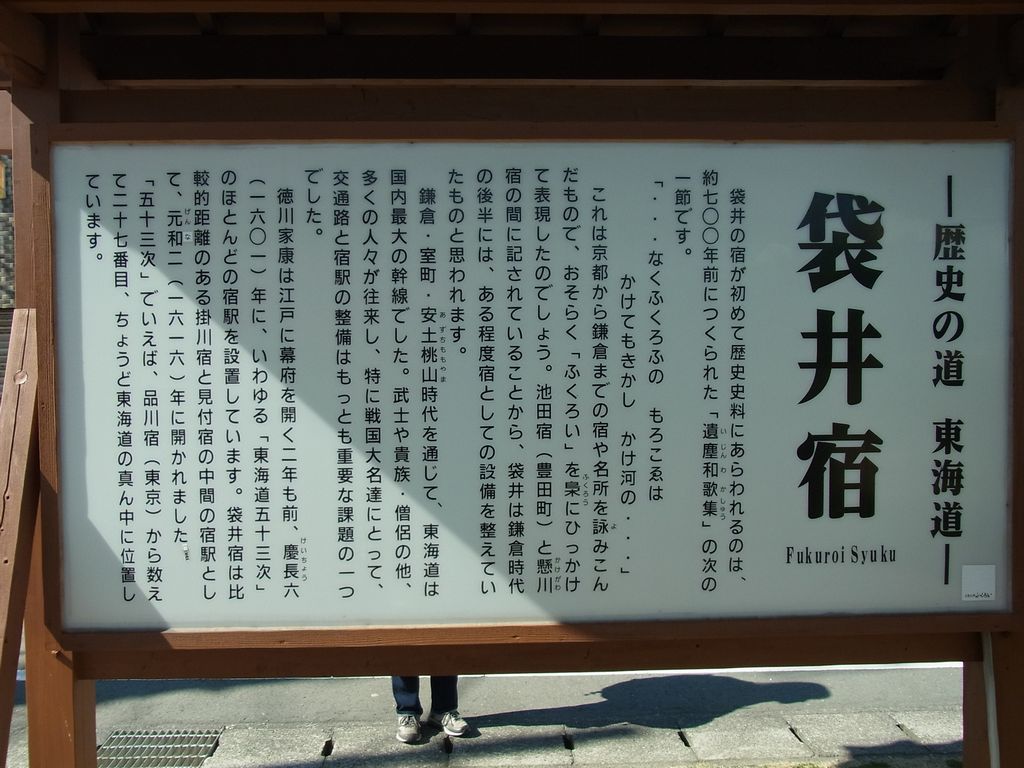 ―歴史の道 東海道―
袋井宿
Fukuroi Syuku
袋井の宿が初めて歴史史料にあらわれるのは、
約七〇〇年前につくられた「遺塵和歌集」の次の
一節です。
「・・・なくふくろふの もろこゑは
かけてもきかし かけ河の・・・」
これは京都から鎌倉までの宿や名所を詠みこん
だもので、おそらく「ふくろい」を梟にひっかけ
て表現したのでしょう。池田宿（豊田町）と懸川
宿の間に記されていることから、袋井は鎌倉時代
の後半には、ある程度宿としての設備を整えてい
たものと思われます。
鎌倉・室町・安土桃山時代を通じて、東海道は
国内最大の幹線でした。武士や貴族・僧侶の他、
多くの人々が往来し、特に戦国大名達にとって、
交通路と宿駅の整備はもっとも重要な課題の一つ
でした。
徳川家康は江戸に幕府を開く二年も前、慶長六
（一六〇一）年に、いわゆる「東海道五十三次」
のほとんどの宿駅を設置しています。袋井宿は比
較的距離のある掛川宿と見付宿の中間の宿駅とし
て、元和二（一六一六）年に開かれました。
「五十三次」でいえば、品川宿（東京）から数え
て二十七番目、ちょうど東海道の真ん中に位置し
ています。